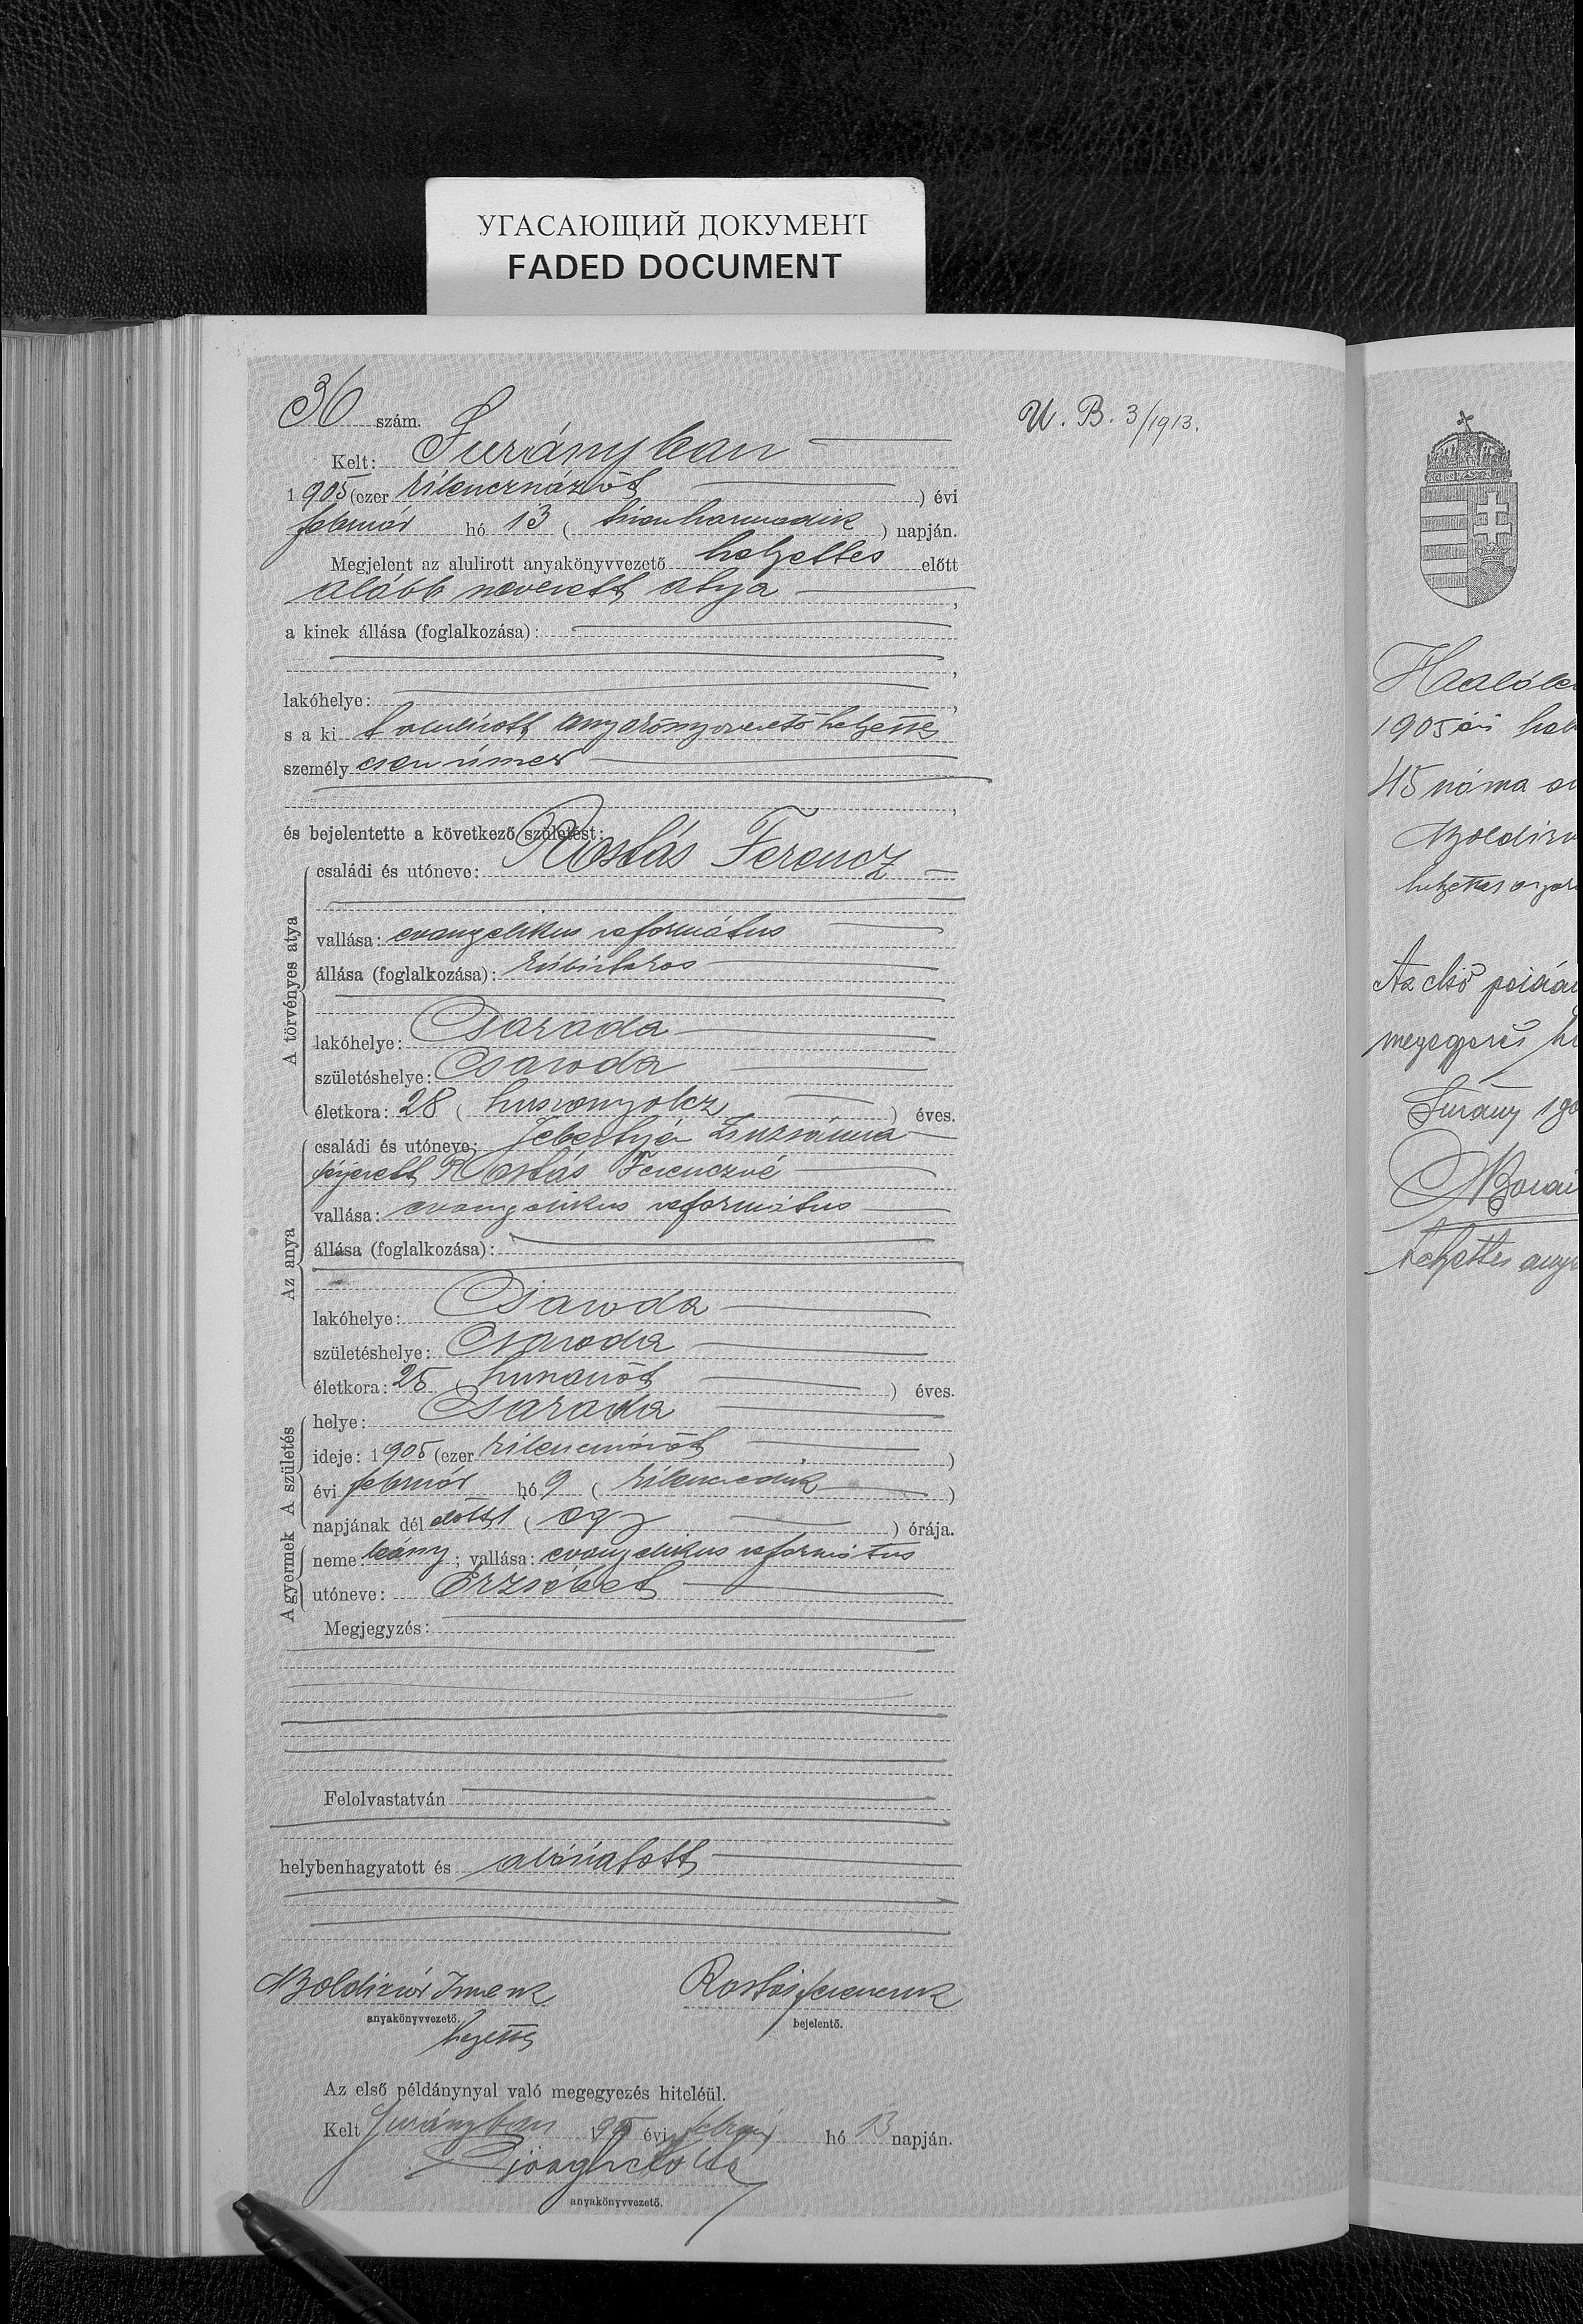 УГАСАЮЩИЙ ДОКУМЕНТ
FADED DOCUMENT
36 szám.
U. B. 3/1913.
Kelt: Surányban
1905 (ezer kilenczszázöt) évi
február hó 13 (tizenharmadik) napján.
Megjelent az alulirott anyakönyvvezető helyettes előtt
alább nevezett atya,
a kinek állása (foglalkozása):
lakóhelye:
s a ki alulirott anyakönyvvezető helyettes
személyesen ismer
és bejelentette a következő születést:
A törvényes atya
családi és utóneve: Rostás Ferencz
vallása: evangelikus református
állása (foglalkozása): kubikos
lakóhelye: Csaroda
születéshelye: Csaroda
életkora: 28 (huszonnyolcz) éves.
Az anya
családi és utóneve: Zsuzsánna
férjezett Rostás Ferenczné
vallása: evangelikus református
állása (foglalkozása):
lakóhelye: Csaroda
születéshelye: Csaroda
életkora: 25 (huszonöt) éves.
A születés
helye: Csaroda
ideje: 1905 (ezer kilenczszázöt)
évi február hó 9 (kilenczedik)
napjának dél előtt 1 (egy) órája.
A gyermek
neme leány; vallása: evangelikus református
utóneve: Erzsébet
Megjegyzés:
Felolvastatván
helybenhagyatott és aláíratott
Boldizsár
Rostás Ferencz
anyakönyvvezető.
bejelentő.
helyettes
Az első példánynyal való megegyezés hiteléül.
Kelt Surányban 1905 évi február hó 13 napján.
anyakönyvvezető.
1905 évi
45
Boldizs
helyettes
Az első
megegyezés
Surány 190
helyettes